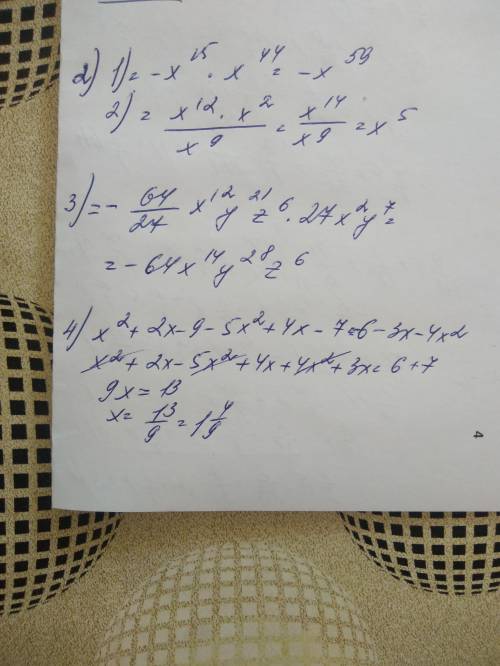 2) 1) = -x^15 · x^44 = -x^59
2) = (x^12 · x^2)/(x^9) = x^14/x^9 = x^5
3) = - 64/27 x^12 y^21 z^6 · 27x^2 y^7 =
= -64x^14 y^28 z^6
4) x^2 + 2x - 9 - 5x^2 + 4x - 7 = 6 - 3x - 4x^2
x^2 + 2x - 5x^2 + 4x + 4x^2 + 3x = 6 + 7
9x = 13
x = 13/9 = 1 4/9
4